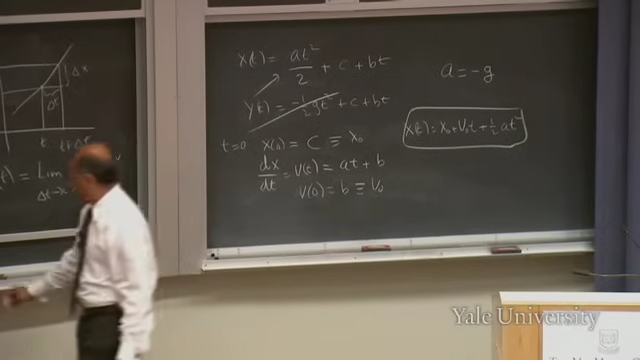 Δx
Δt
t t+Δt
(t) = Lim
Δt→
x(t) = at²/2 + c + bt
y(t) = -½gt² + c + bt
t=0 x(0) = c ≡ x₀
dx/dt = v(t) = at + b
v(0) = b ≡ v₀
a = -g
x(t) = x₀+v₀t+½at²
Yale University